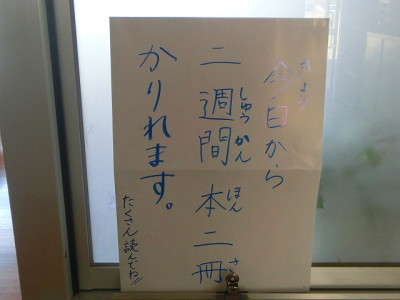 今日から
きょう
二週間 本二冊
しゅうかん ほん さつ
かりれます。
たくさん読んでね!!